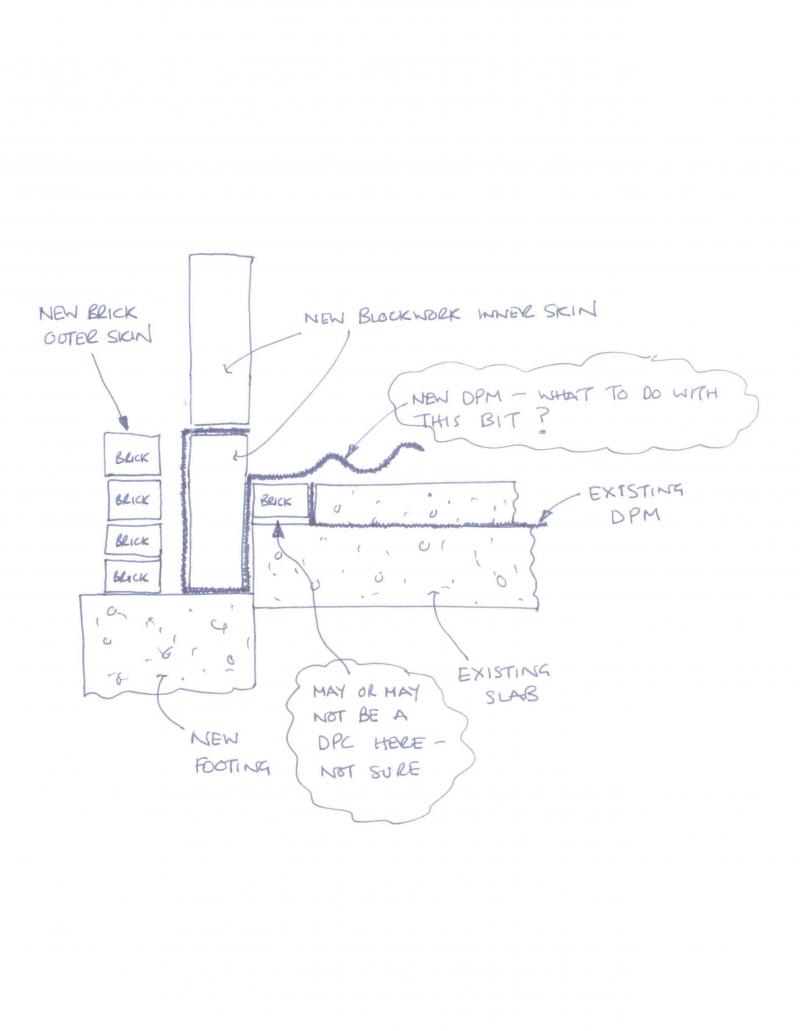 NEW BRICK
OUTER SKIN
NEW BLOCKWORK INNER SKIN
NEW DPM - WHAT TO DO WITH
THIS BIT ?
BRICK
BRICK
BRICK
BRICK
BRICK
EXISTING
DPM
EXISTING
SLAB
NEW
FOOTING
MAY OR MAY
NOT BE A
DPC HERE -
NOT SURE